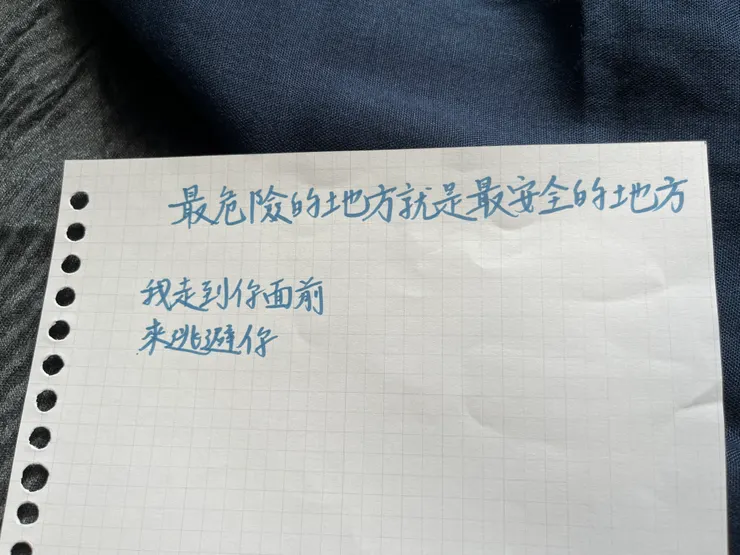 最危險的地方就是最安全的地方
我走到你面前
來逃避你